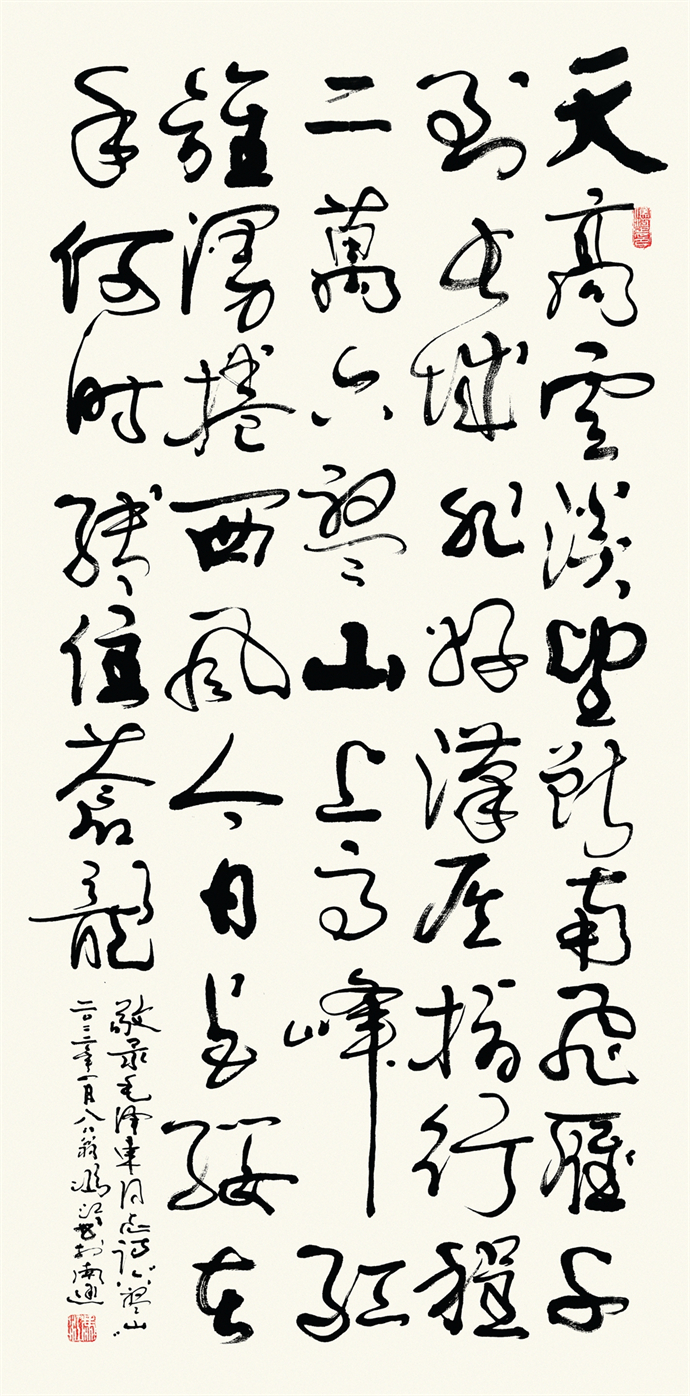 天高雲淡望斷南飛雁不
到長城非好漢屈指行程
二萬六盤山上高峰紅
旗漫捲西風今日長纓在
手何时縛住蒼龍
敬录毛澤東同志词六盤山
二〇二二年一月八八翁书於南通